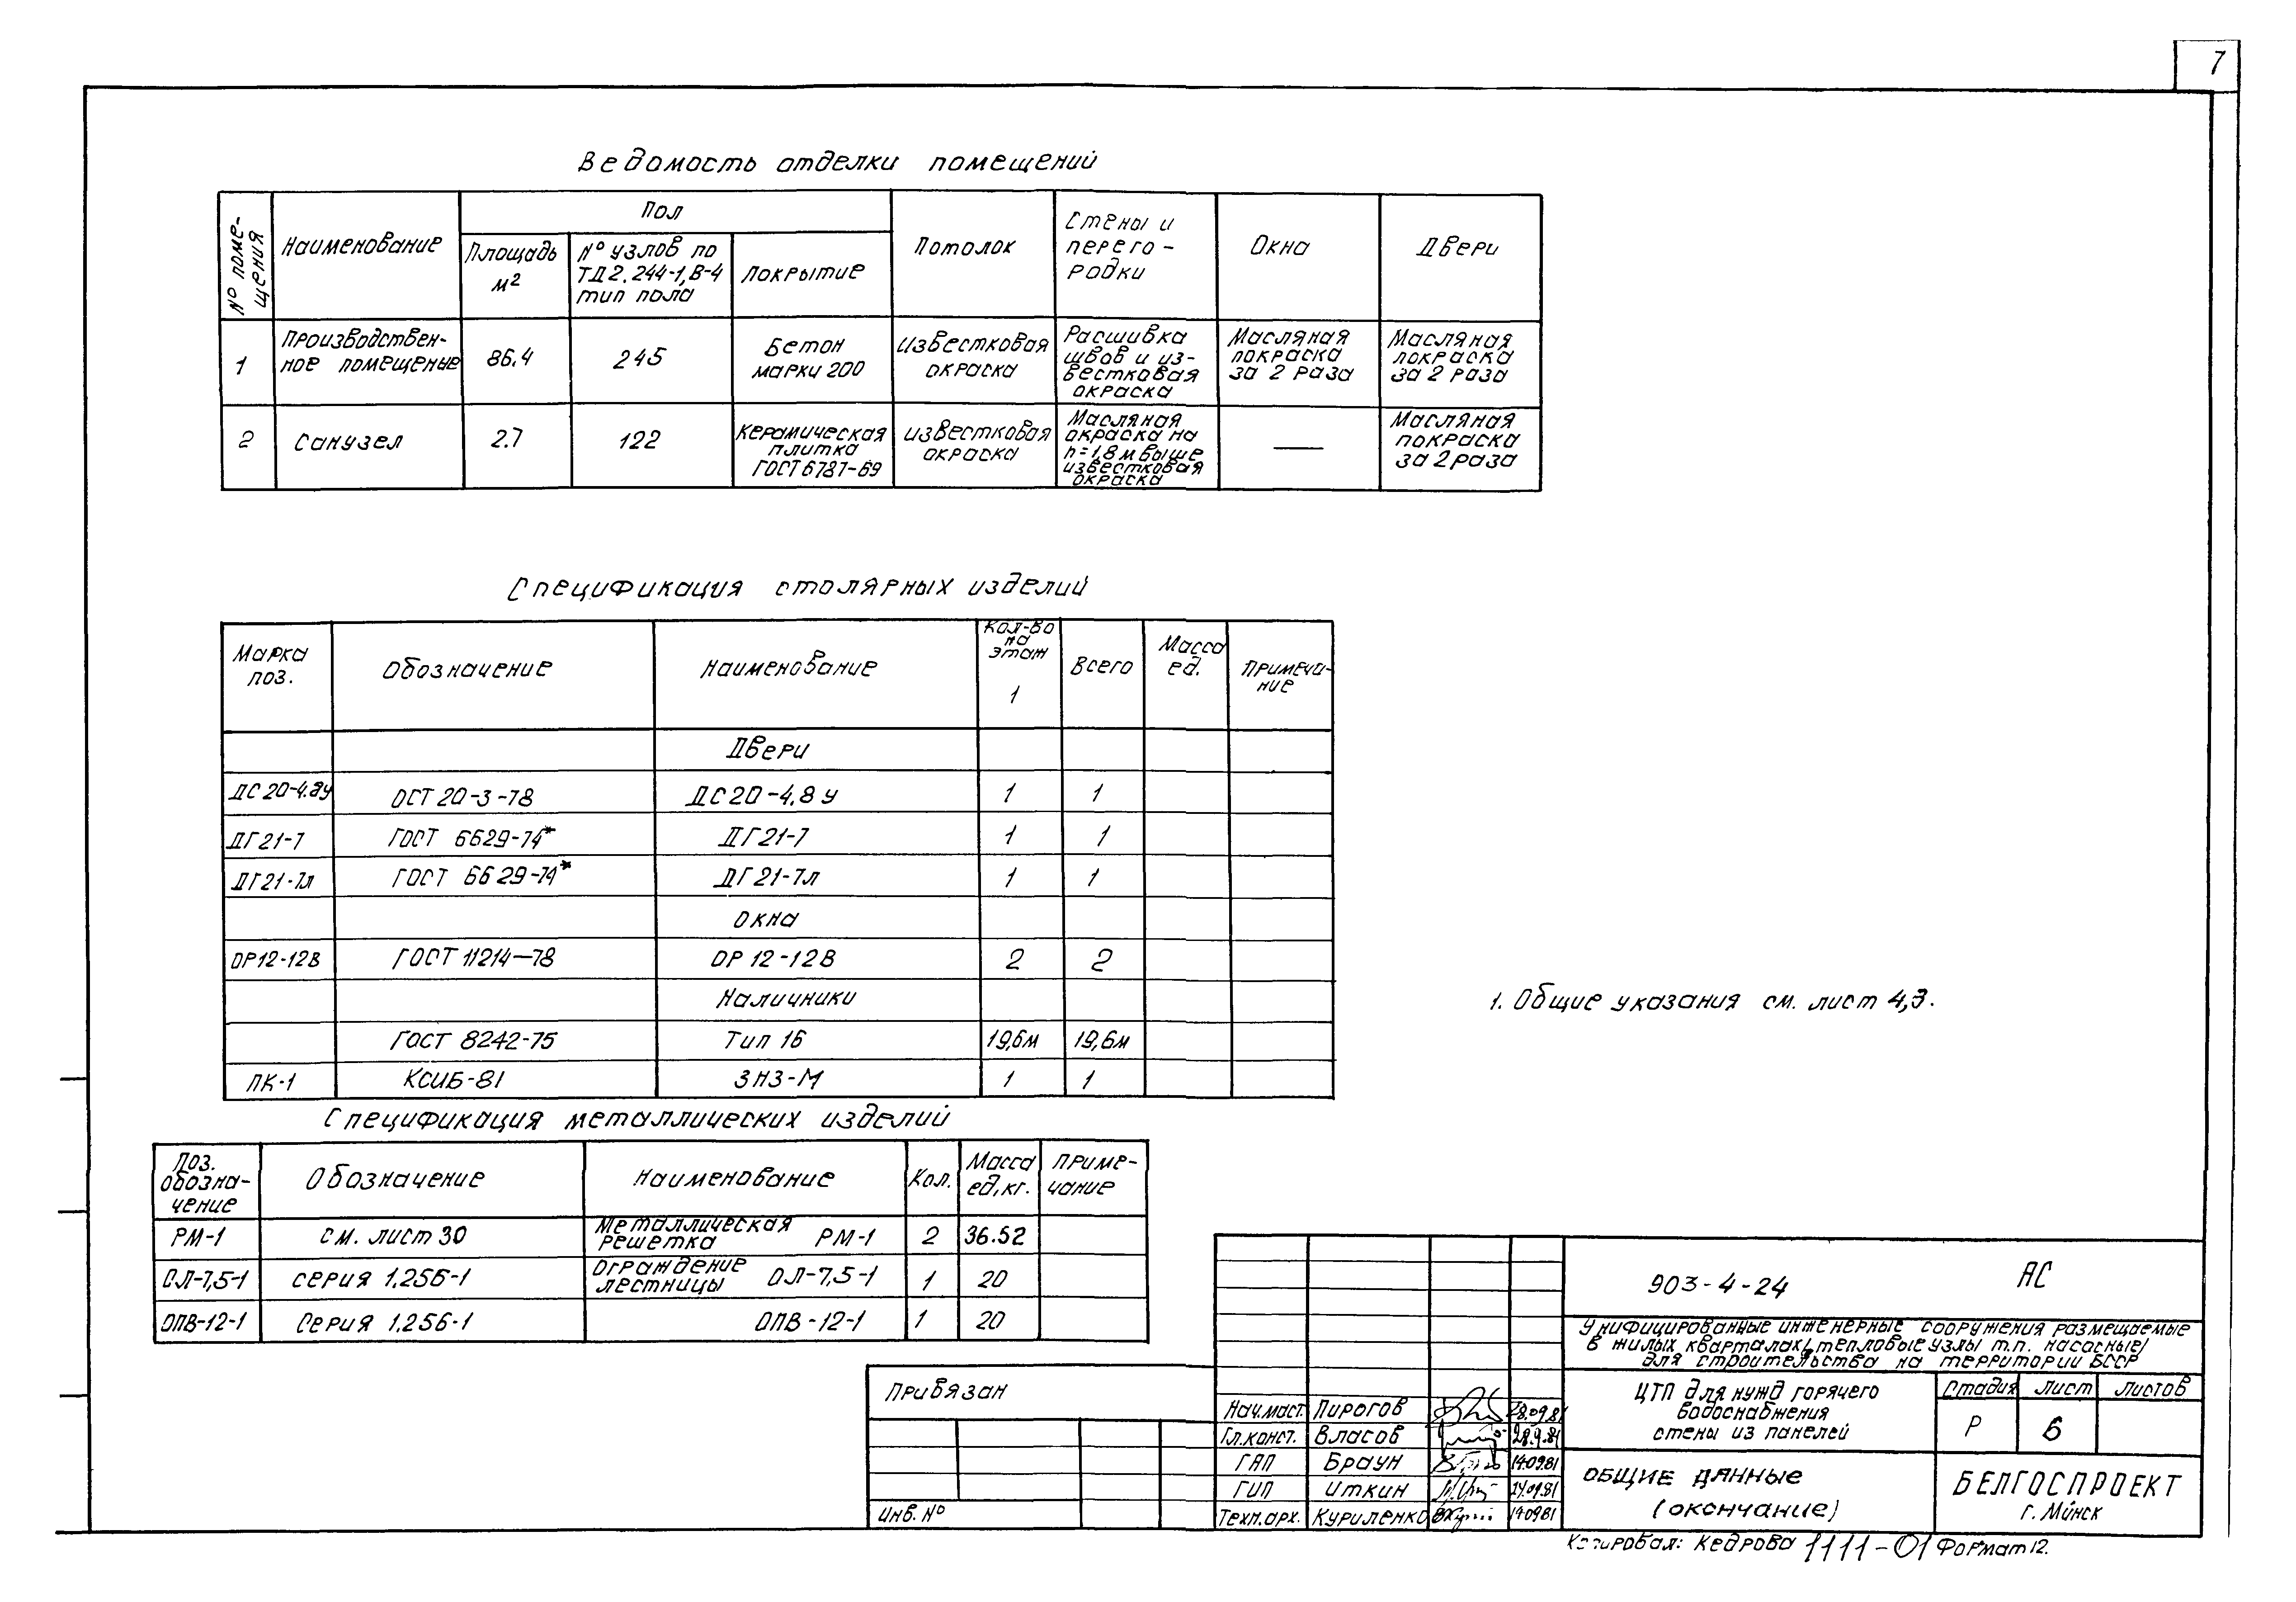 7
Ведомость отделки помещений
№ поме-
щения
Наименование
Пол
Площадь
м²
№ узлов по
ТД2.244-1,В-4
тип пола
Покрытие
Потолок
Стены и
перего-
родки
Окна
Двери
1
Производствен-
ное помещение
86.4
245
Бетон
марки 200
Известковая
окраска
Расшивка
швов и из-
вестковая
окраска
Масляная
покраска
за 2 раза
Масляная
покраска
за 2 раза
2
Санузел
2.7
122
Керамическая
плитка
ГОСТ 6787-69
известковая
окраска
Масляная
окраска на
h=1,8 м выше
известковая
окраска
—
Масляная
покраска
за 2 раза
Спецификация столярных изделий
Марка
поз.
Обозначение
Наименование
Кол-во
на
этаж
1
Всего
Масса
ед.
Примеча-
ние
Двери
ДС20-4.8У ОСТ 20-3-78 ДС20-4,8У 1 1
ДГ21-7 ГОСТ 6629-74* ДГ21-7 1 1
ДГ21-7л ГОСТ 6629-74* ДГ21-7л 1 1
Окна
ОР12-12В ГОСТ 11214-78 ОР 12-12В 2 2
Наличники
ГОСТ 8242-75 Тип 16 19,6м 19,6м
ЛК-1 КСИБ-81 ЗНЗ-М 1 1
1. Общие указания см. лист 4,3.
Спецификация металлических изделий
Поз.
обозна-
чение
Обозначение
Наименование
Кол.
Масса
ед,кг.
Приме-
чание
РМ-1 см. лист 30
Металлическая
решетка РМ-1
2 36.52
ОЛ-7,5-1 серия 1.256-1
Ограждение
лестницы ОЛ-7,5-1
1 20
ОПВ-12-1 Серия 1.256-1 ОПВ-12-1 1 20
Привязан
Инв. №
Нач.маст. Пирогов 28.09.81
Гл.конст. Власов 28.9.81
ГАП Браун 14.09.81
ГИП Иткин 24.09.81
Техн.арх. Куриленко 14.09.81
903-4-24 АС
Унифицированные инженерные сооружения размещаемые
в жилых кварталах/тепловые узлы т.п. насосные/
для строительства на территории БССР
ЦТП для нужд горячего
водоснабжения
стены из панелей
Стадия Лист Листов
Р 6
Общие данные
(окончание)
БЕЛГОСПРОЕКТ
г. Минск
Копировал: Кедрова 1111-01 Формат 12.